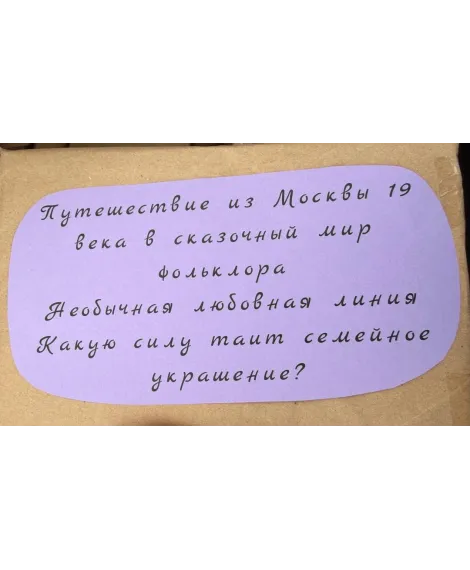 Путешествие из Москвы 19
века в сказочный мир
фольклора
Необычная любовная линия
Какую силу таит семейное
украшение?